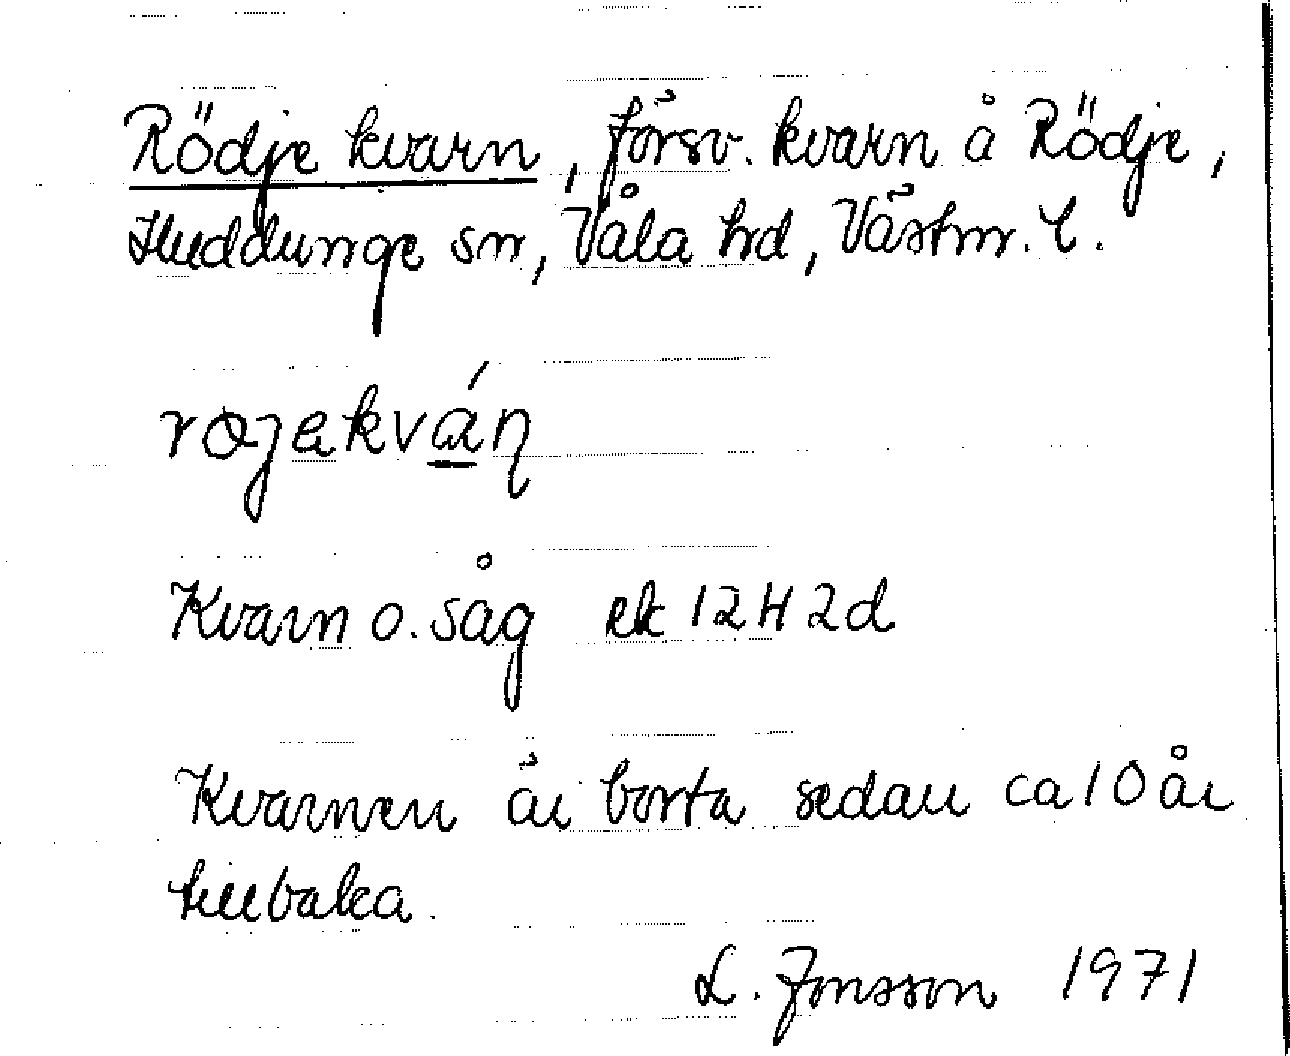 Rödje kvarn, försv. kvarn å Rödje,
Huddunge sn, Våla hd, Västm. l.
Kvarn o. såg ek 12H2d
Kvarnen är borta sedan ca 10 år
tillbaka.
L. Jonsson 1971